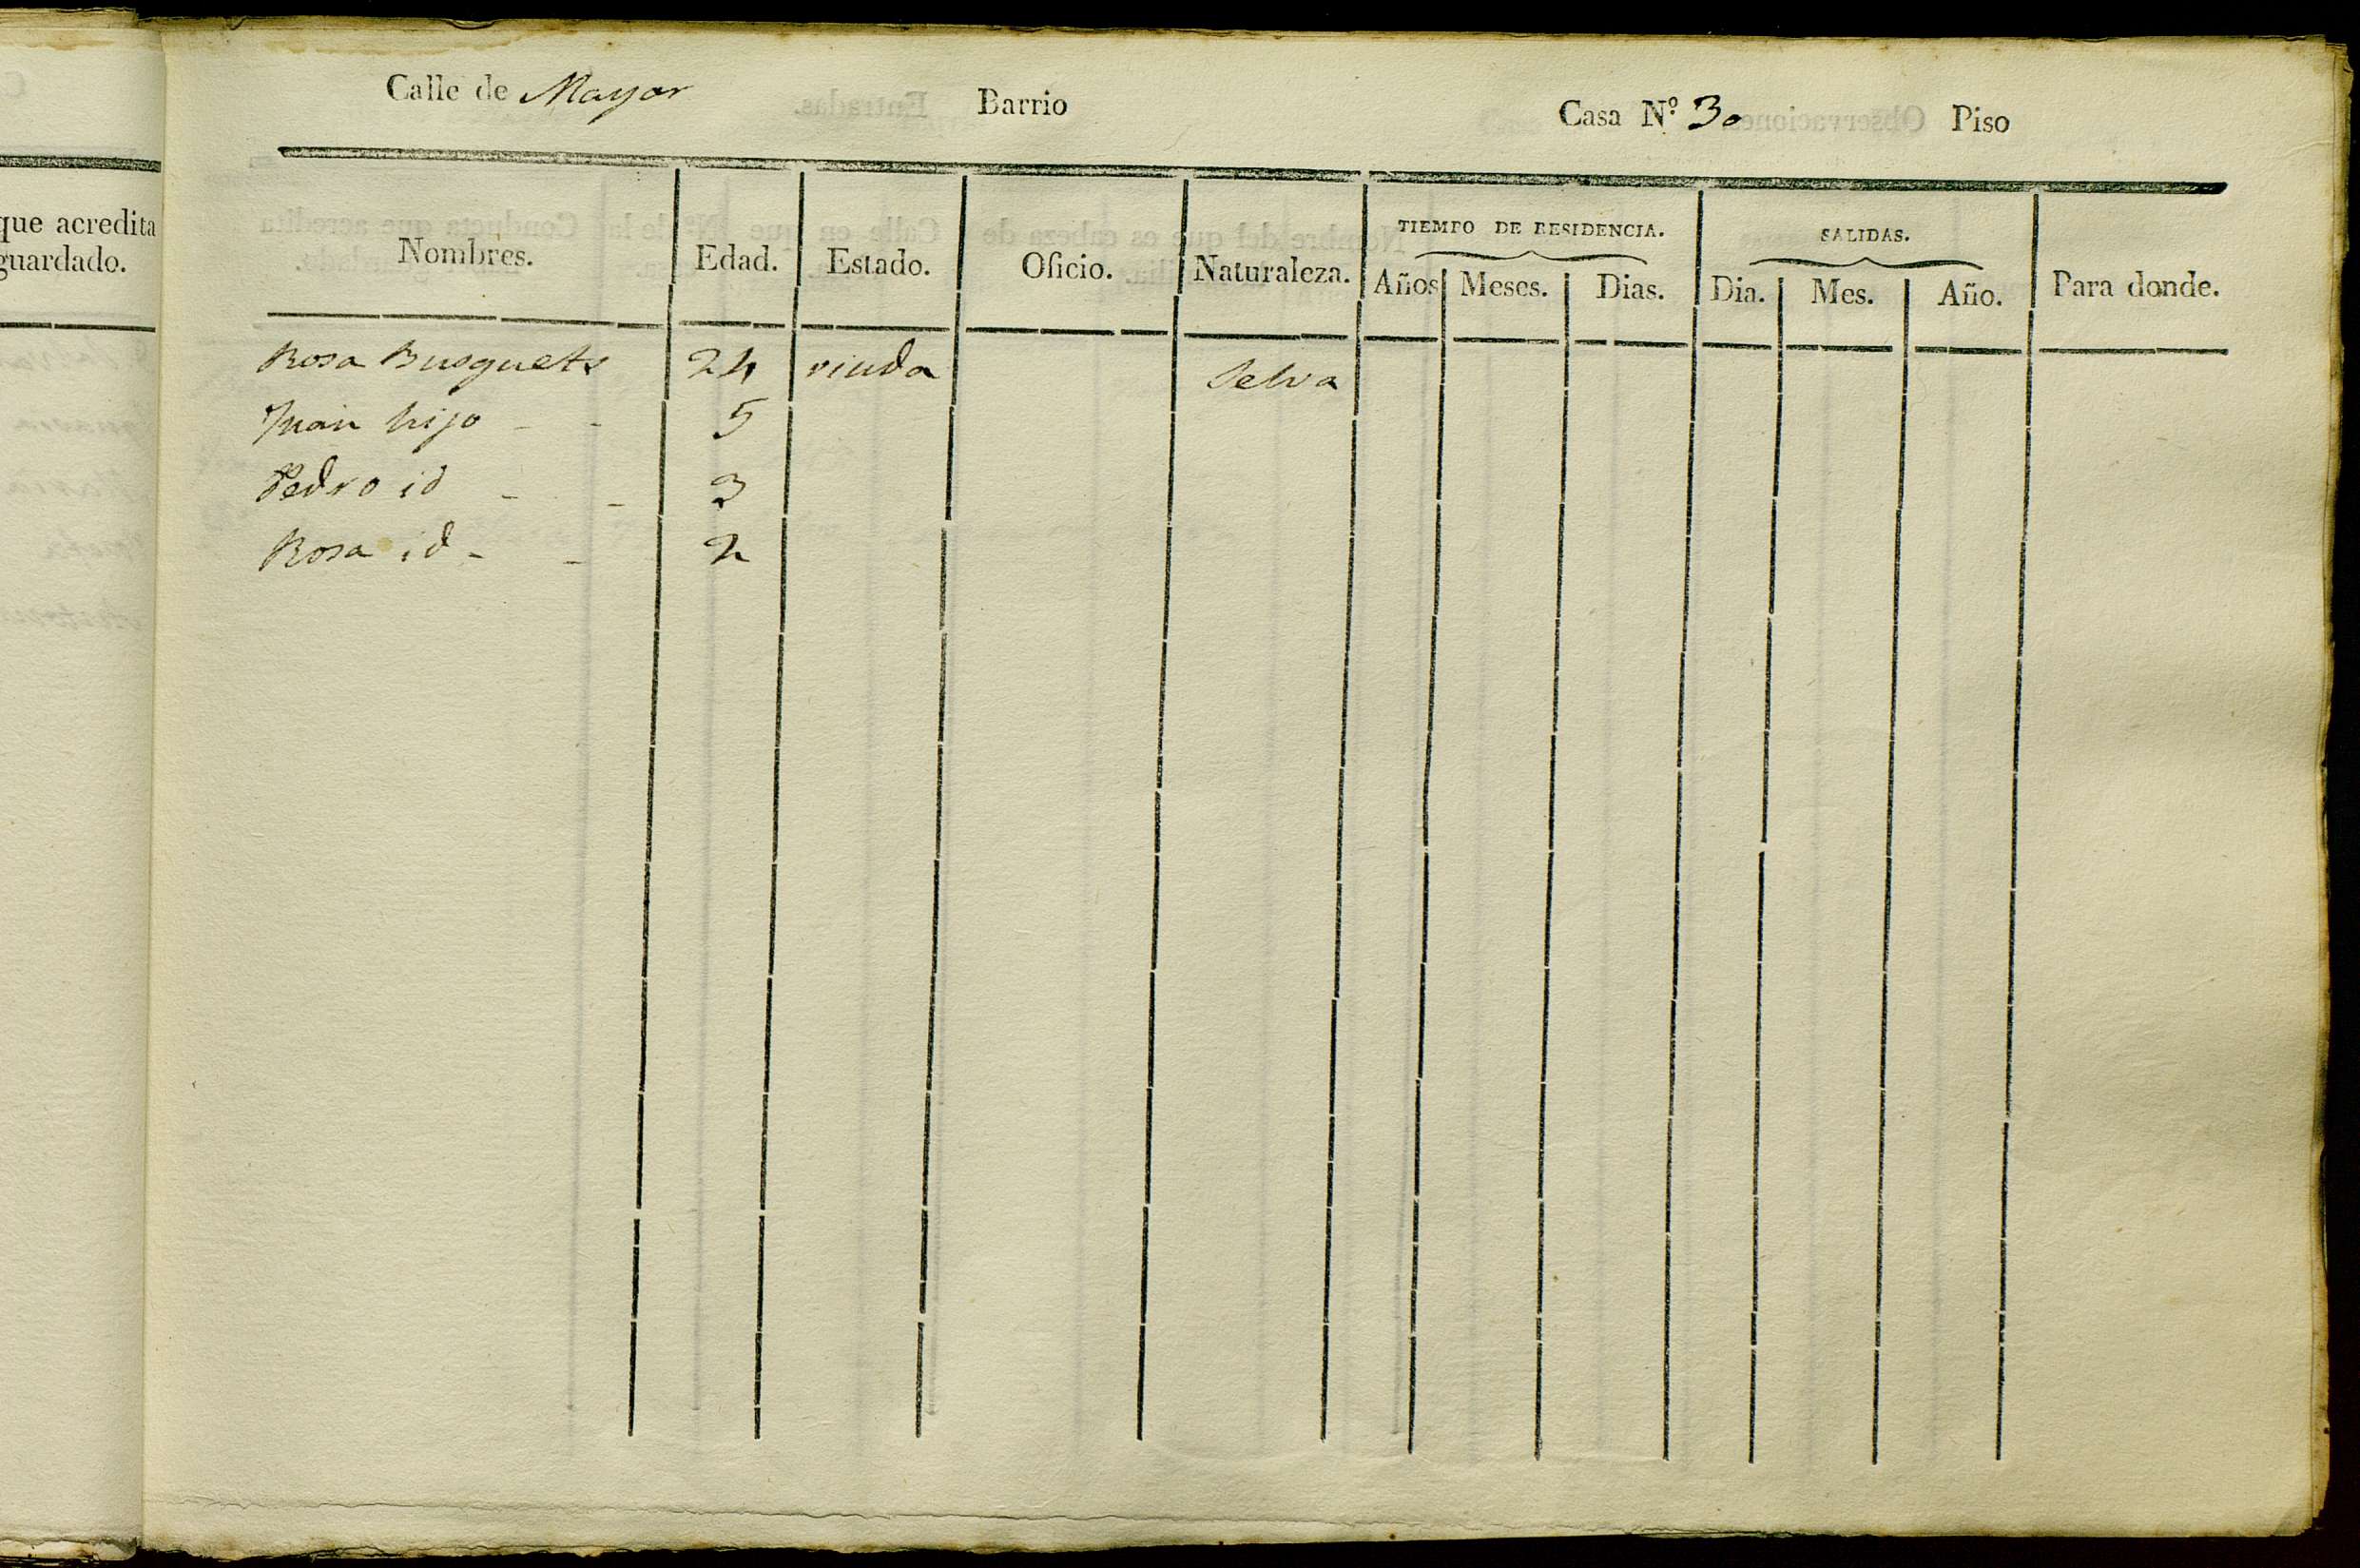 que acredita
guardado.
Calle de Mayor Barrio Casa Nº 30 Piso
Nombres. Edad. Estado. Oficio. Naturaleza. TIEMPO DE RESIDENCIA. SALIDAS. Para donde.
Años Meses. Dias. Dia. Mes. Año.
Rosa Busquets 24 viuda Selva
Juan hijo - - 5
Pedro id - - 3
Rosa id - - 2